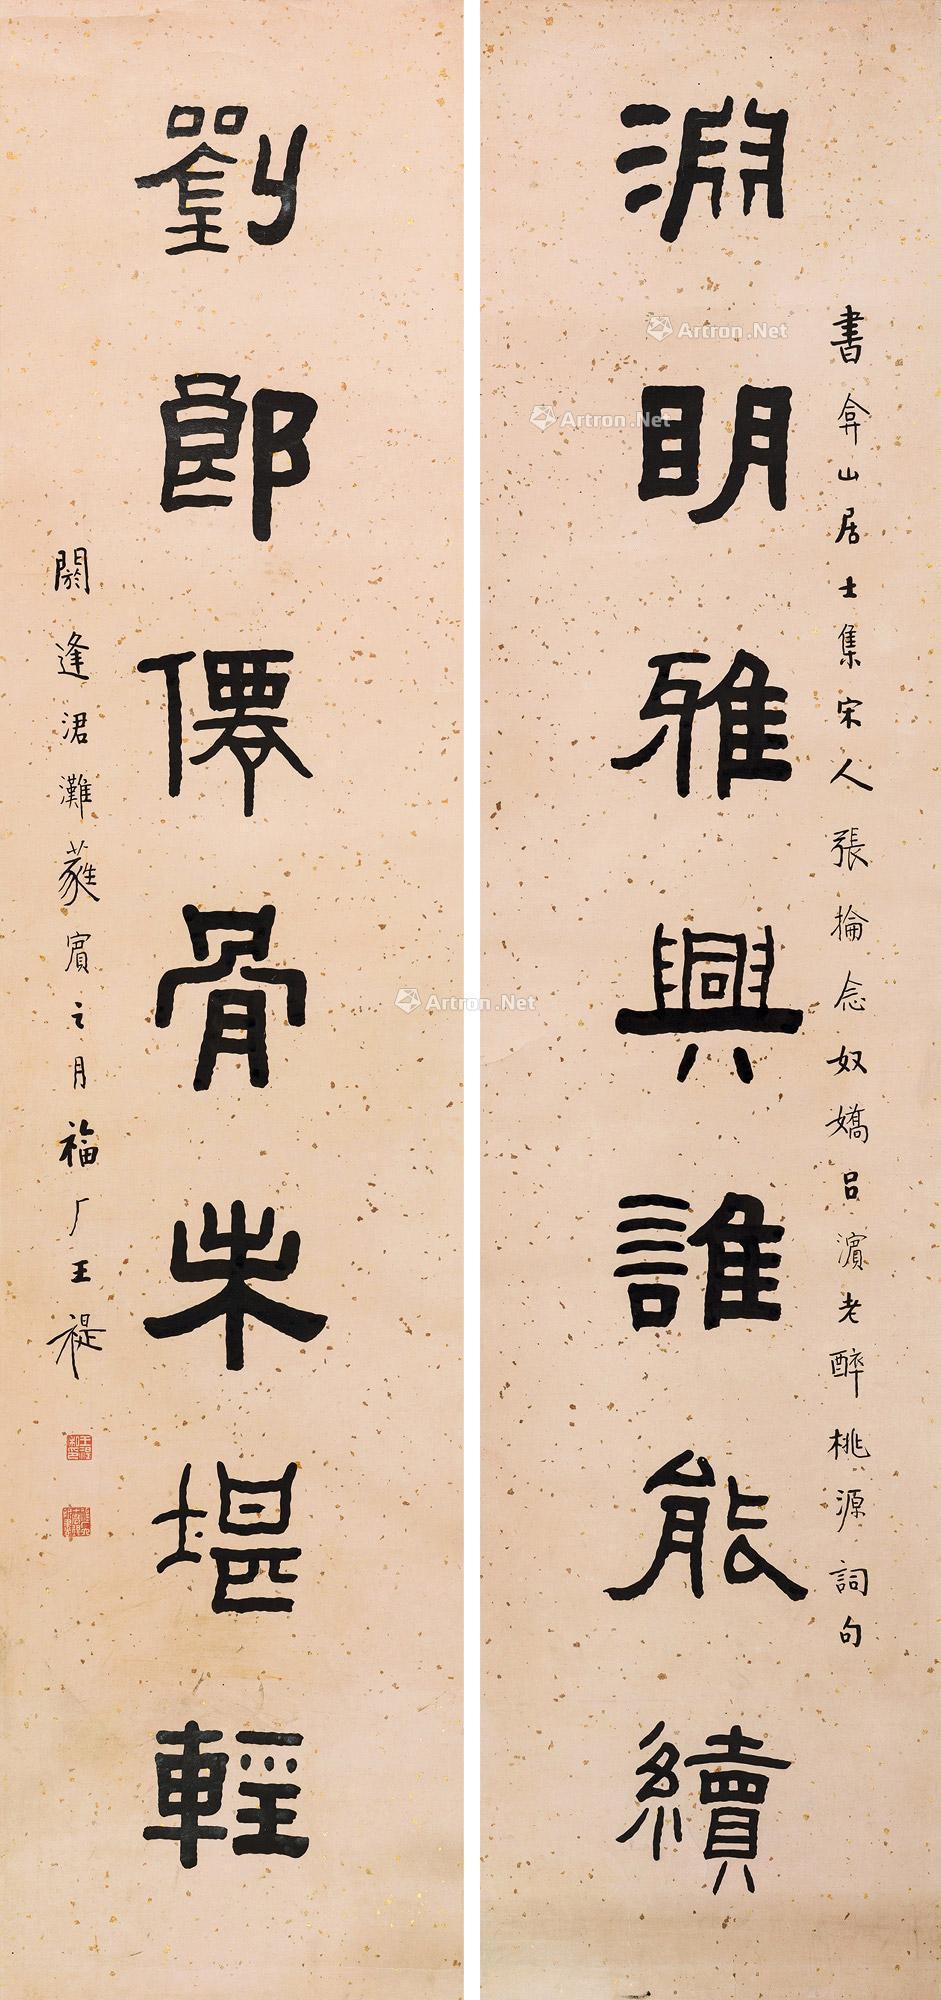 淵明雅興誰能續
書弇山居士集宋人張掄念奴嬌呂濱老醉桃源詞句
劉郎僊骨未堪輕
閼逢涒灘蕤賓之月福厂王禔
Artron.Net
Artron.Net
Artron.Net